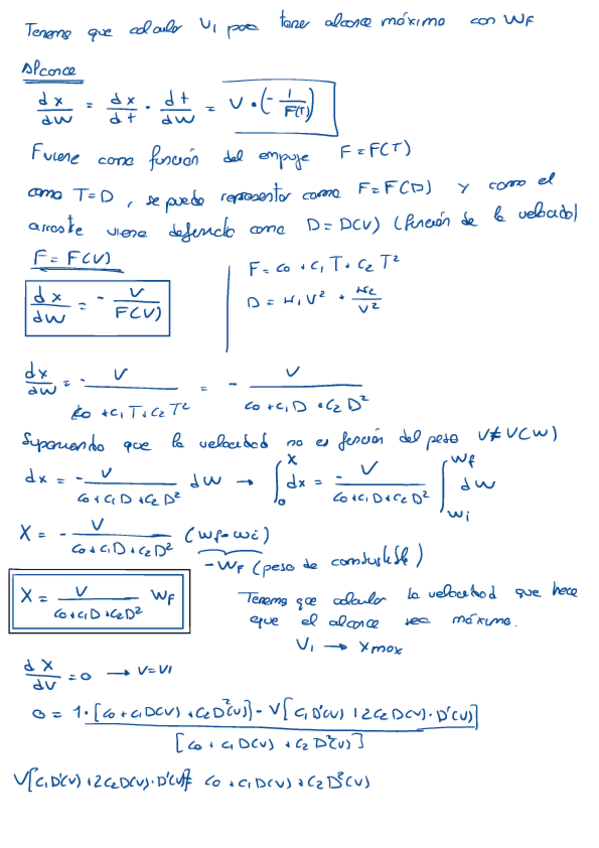 Tenemos que calcular V1 para tener alcance máximo con WF
Alcance
dx/dW = dx/dt · dt/dW = V · (- 1/F(T))
F viene como función del empuje F = F(T)
como T=D, se puede representar como F=F(D) y como el
arrastre viene definido como D = D(V) (función de la velocidad)
F = F(V)
F = C0 + C1 T + C2 T²
dx/dW = - V/F(V)
D = K1 V² + K2/V²
dx/dW = - V/(C0 + C1 T + C2 T²) = - V/(C0 + C1 D + C2 D²)
Suponiendo que la velocidad no es función del peso V≠V(W)
dx = - V/(C0 + C1 D + C2 D²) dW → ∫₀ˣ dx = - V/(C0 + C1 D + C2 D²) ∫_Wi^Wf dW
X = - V/(C0 + C1 D + C2 D²) (Wf - Wi)
-WF (peso de combustible)
X = V/(C0 + C1 D + C2 D²) WF
Tenemos que calcular la velocidad que hace
que el alcance sea máximo.
V1 → Xmax
dX/dV = 0 → V = V1
0 = 1·[C0 + C1 D(V) + C2 D²(V)] - V[C1 D'(V) + 2C2 D(V)·D'(V)]
[C0 + C1 D(V) + C2 D²(V)]
V[C1 D'(V) + 2C2 D(V)·D'(V)] = C0 + C1 D(V) + C2 D²(V)